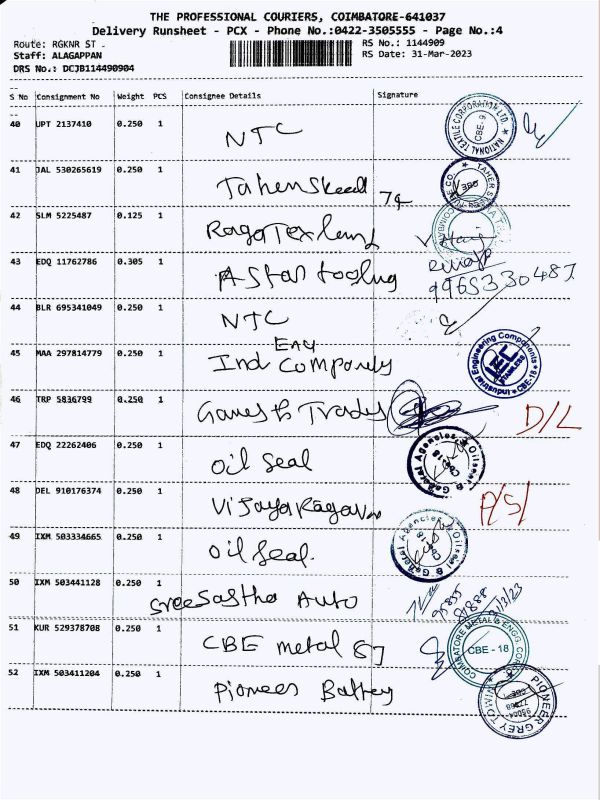 THE PROFESSIONAL COURIERS, COIMBATORE-641037
Delivery Runsheet - PCX - Phone No.:0422-3505555 - Page No.:4
Route: RGKNR ST .
RS No.: 1144909
Staff: ALAGAPPAN
RS Date: 31-Mar-2023
DRS No.: DCJB114490904
S No Consignment No Weight PCS Consignee Details Signature
40 UPT 2137410 0.250 1 NTC
NATIONAL TEXTILE CORPORATION LTD. CBE-9
41 JAL 530265619 0.250 1
TAHER
42 SLM 5225487 0.125 1
43 EDQ 11762786 0.305 1 A Star tooling
44 BLR 695341049 0.250 1 NTC
45 MAA 297814779 0.250 1 Ind Eng Company
Industrial Engineering Components CBE-18
46 TRP 5836799 0.250 1 D/L
47 EDQ 22262406 0.250 1 oil seal
Oilseal & General Agencies CBE-18
48 DEL 910176374 0.250 1 P/S/
49 IXM 503334665 0.250 1 oil seal.
Oilseal & General Agencies
50 IXM 503441128 0.250 1 Sree Sastha Auto
51 KUR 529378708 0.250 1 CBE metal
COIMBATORE METAL & ENGG. CBE - 18
52 IXM 503411204 0.250 1 Pioneer Battery
PIONEER